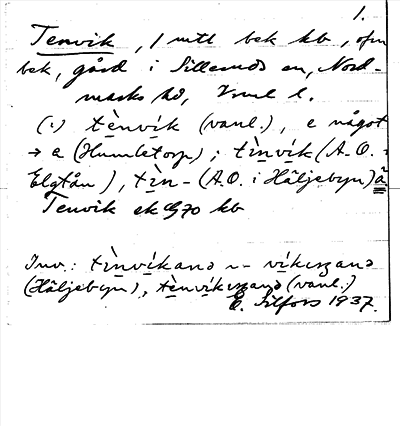 1.
Tenvik, 1 mtl bek kb, ofm
bek, gård i Silleruds sn, Nord-
marks hd, Vrml l.
(.) tènvík (vanl.), e något
→ a (Humletorp); tìnvík (A.O. i
Elgtån), tìn- (A.O. i Häljebyn) å
Tenvik ek 970 kb
Inv.: tìnvíkanə ~ - víkızanə
(Häljebyn), tènvíkızanə (vanl.)
E. Silfors 1937.